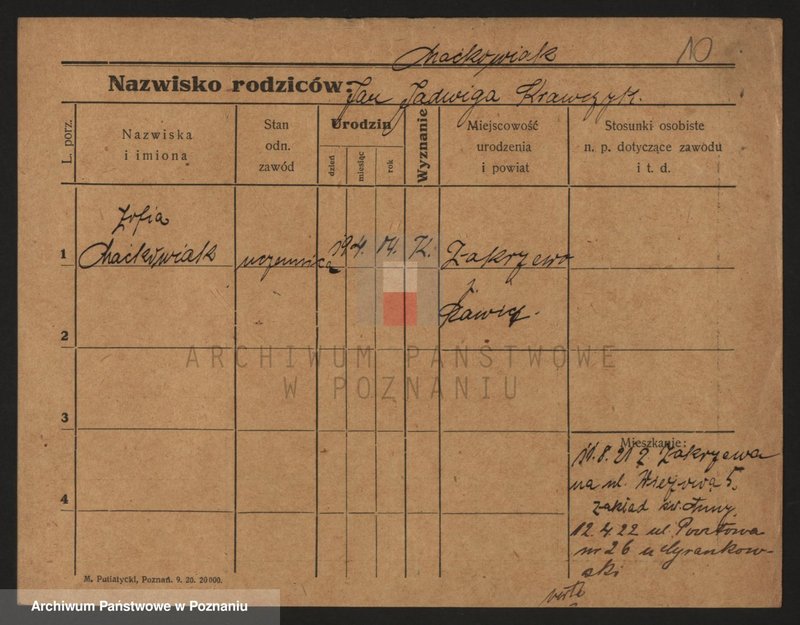 Maćkowiak
10
Nazwisko rodziców:
Jan Jadwiga Krawczyk.
L. porz.
Nazwiska
i imiona
Stan
odn.
zawód
Urodzin
dzień
miesiąc
rok
Wyznanie
Miejscowość
urodzenia
i powiat
Stosunki osobiste
n. p. dotyczące zawodu
i t. d.
Zofia
1 Maćkowiak uczennica 19 4. 04. K. Zakrzewo
p.
Rawicz.
2
ARCHIWUM PAŃSTWOWE
W POZNANIU
3
Mieszkanie:
11.8.21 z Zakrzewa
na ul. 5,
4
zakład św. Anny,
12.4.22 ul. Pocztowa
nr 26 u
ski
verte
M. Putiatycki, Poznań. 9. 20. 20000.
Archiwum Państwowe w Poznaniu